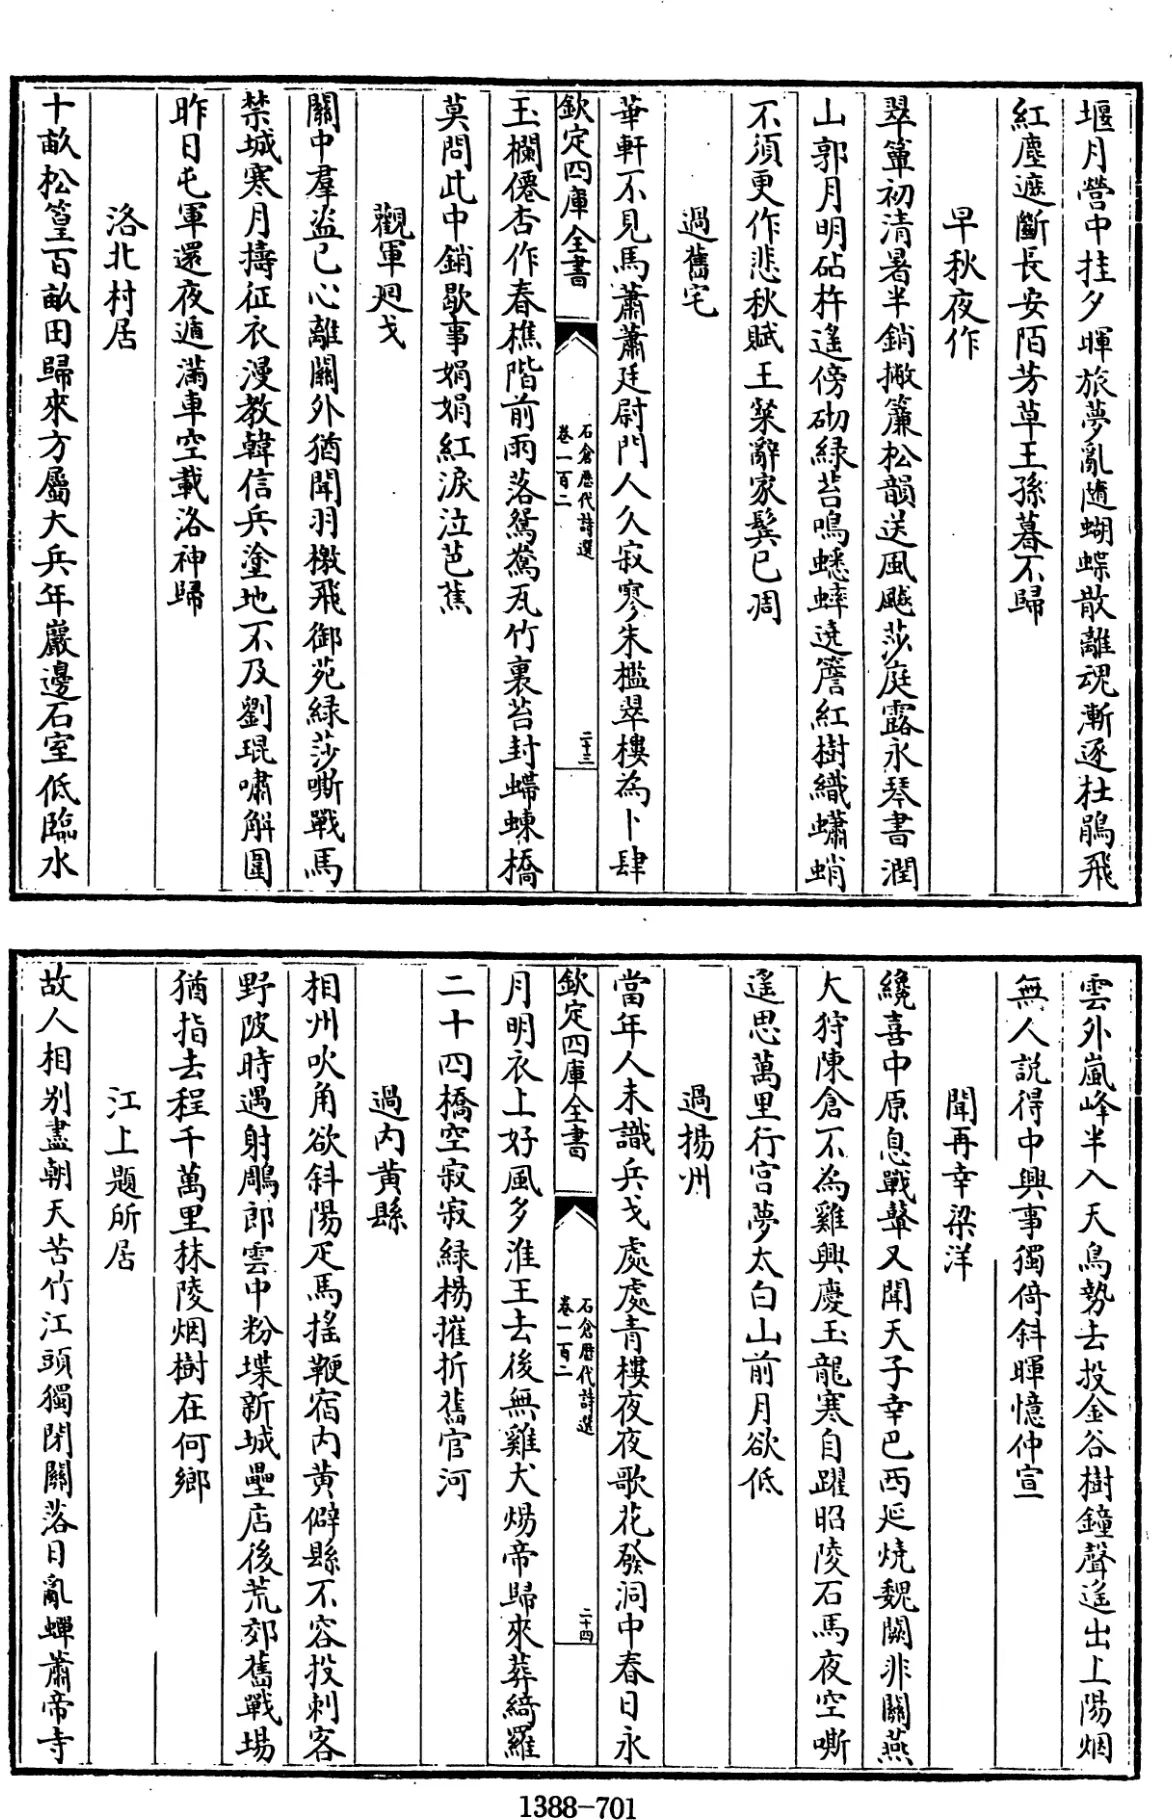 堰月營中挂夕暉旅夢亂隨蝴蝶散離魂漸逐杜鵑飛
紅塵遮斷長安陌芳草王孫暮不歸
早秋夜作
翠簟初清暑半銷撇簾松韻送風飈莎庭露永琴書潤
山郭月明砧杵遥傍砌緑苔鳴蟋蟀遶簷紅樹織蠨蛸
不須更作悲秋賦王粲辭家鬂已凋
過舊宅
華軒不見馬蕭蕭廷尉門人久寂寥朱檻翠樓為卜肆
欽定四庫全書
石倉歷代詩選
卷一百二
二十三
玉欄僊杏作春樵階前雨落鴛鴦瓦竹裏苔封螮蝀橋
莫問此中銷歇事娟娟紅淚泣芭蕉
觀軍廻戈
關中羣盜已心離關外猶聞羽檄飛御苑緑莎嘶戰馬
禁城寒月擣征衣漫教韓信兵塗地不及劉琨嘯解圍
昨日屯軍還夜遁滿車空載洛神歸
洛北村居
十畝松篁百畝田歸來方屬大兵年巖邊石室低臨水
雲外嵐峰半入天鳥勢去投金谷樹鐘聲遥出上陽烟
無人説得中興事獨倚斜暉憶仲宣
聞再幸梁洋
纔喜中原息戰鼙又聞天子幸巴西延燒魏闕非關燕
大狩陳倉不為雞興慶玉龍寒自躍昭陵石馬夜空嘶
遥思萬里行宫夢太白山前月欲低
過揚州
當年人未識兵戈處處青樓夜夜歌花發洞中春日永
欽定四庫全書
石倉歷代詩選
卷一百二
二十四
月明衣上好風多淮王去後無雞犬煬帝歸來葬綺羅
二十四橋空寂寂緑楊摧折舊官河
過内黄縣
相州吹角欲斜陽疋馬揺鞭宿内黄僻縣不容投刺客
野陂時遇射鵰郎雲中粉堞新城壘店後荒郊舊戰場
猶指去程千萬里秣陵烟樹在何鄉
江上題所居
故人相别盡朝天苦竹江頭獨閉關落日亂蟬蕭帝寺
1388-701